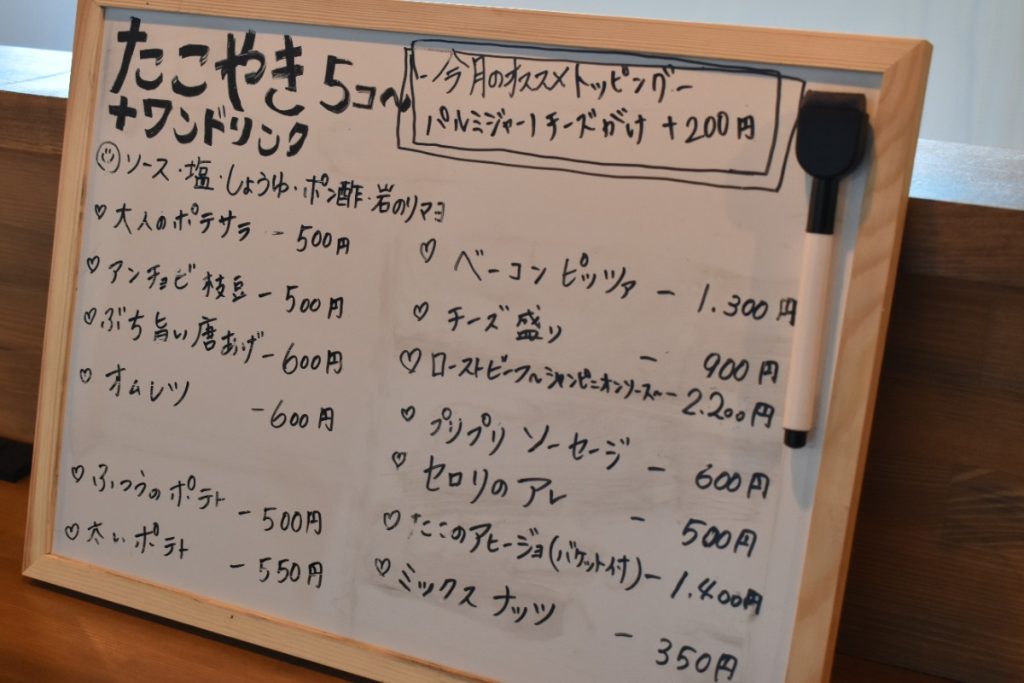 たこやき 5コ〜
+ワンドリンク
- 今月のオススメトッピング -
パルミジャーノチーズがけ +200円
ソース・塩・しょうゆ・ポン酢・岩のりマヨ
♡ 大人のポテサラ - 500円
♡ アンチョビ枝豆 - 500円
♡ ぶち旨い唐あげ - 600円
♡ オムレツ - 600円
♡ ふつうのポテト - 500円
♡ ポテト - 550円
♡ ベーコンピッツァ - 1.300円
♡ チーズ盛り - 900円
♡ ローストビーフ〜シャンピニオンソース〜 - 2.200円
♡ プリプリソーセージ - 600円
♡ セロリのアレ - 500円
♡ たこのアヒージョ(バケット付) - 1.400円
♡ ミックスナッツ - 350円